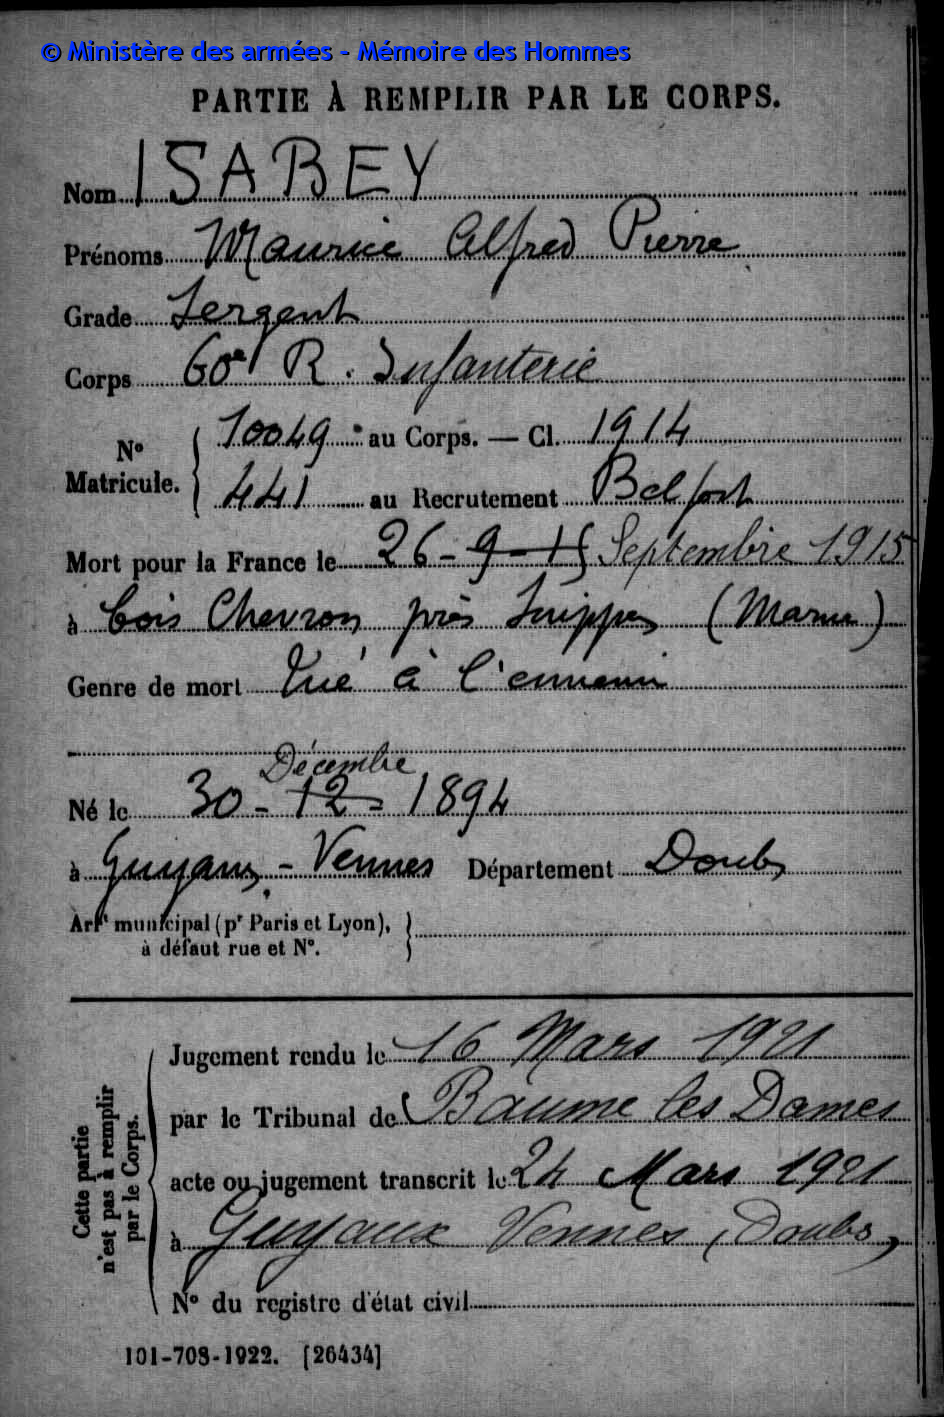 © Ministère des armées - Mémoire des Hommes
PARTIE À REMPLIR PAR LE CORPS.
Nom ISABEY
Prénoms Maurice Alfred Pierre
Grade Sergent
Corps 60e R. Infanterie
N° Matricule. 10049 au Corps. — Cl. 1914
441 au Recrutement Belfort
Mort pour la France le 26 - 9 - 15 Septembre 1915
à bois Chevron près Suippes (Marne)
Genre de mort Tué à l'ennemi
Décembre
Né le 30 - 12 - 1894
à Guyans - Vennes Département Doubs
Arrt municipal (pr Paris et Lyon),
à défaut rue et N°.
Cette partie
n'est pas à remplir
par le Corps.
Jugement rendu le 16 Mars 1921
par le Tribunal de Baume les Dames
acte ou jugement transcrit le 24 Mars 1921
à Guyaux Vennes (Doubs)
N° du registre d'état civil
101-708-1922. [26434]